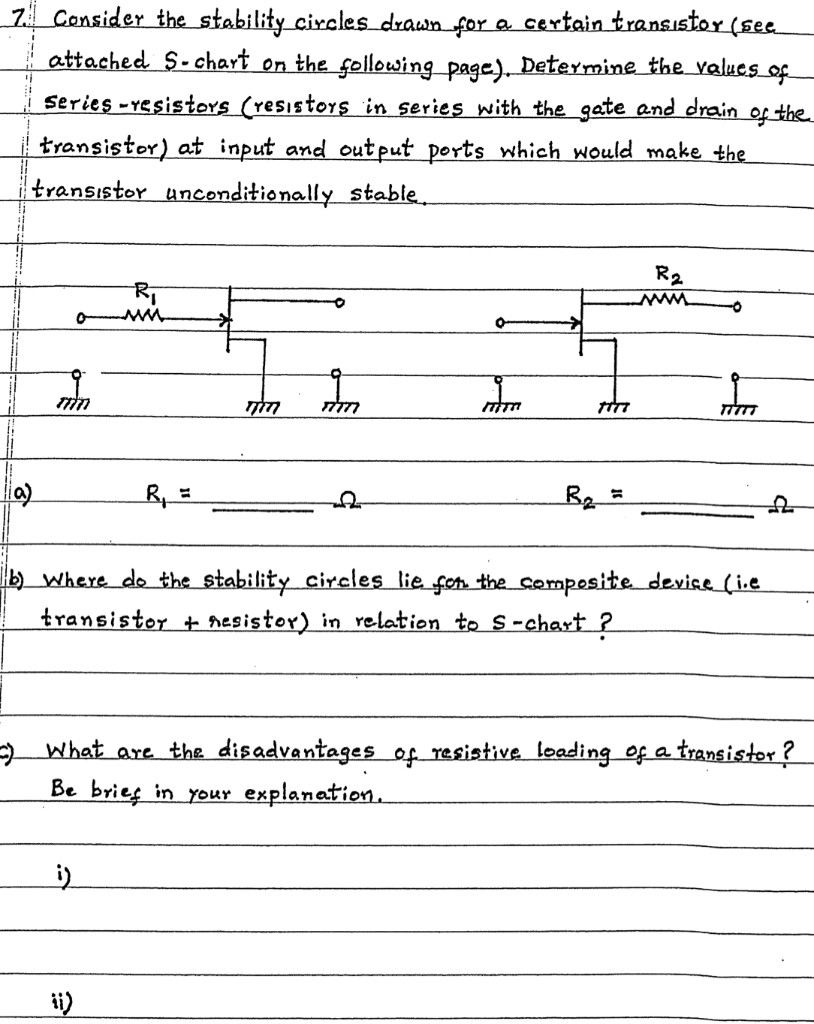 7. Consider the stability circles drawn for a certain transistor (see
attached S-chart on the following page). Determine the values of
series-resistors (resistors in series with the gate and drain of the
transistor) at input and output ports which would make the
transistor unconditionally stable.
R₁
R₂
a) R₁ = ______ Ω R₂ = ______ Ω
b) Where do the stability circles lie for the composite device (i.e
transistor + resistor) in relation to S-chart ?
c) What are the disadvantages of resistive loading of a transistor?
Be brief in your explanation.
i)
ii)